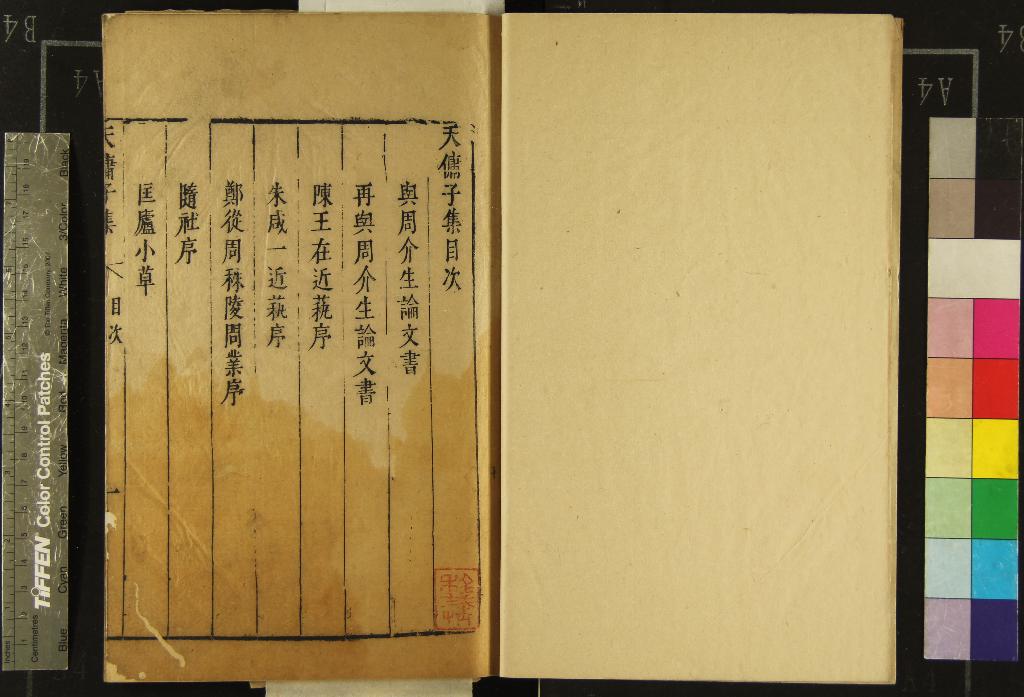 天傭子集目次
與周介生論文書
再與周介生論文書
陳王在近藝序
朱咸一近藝序
鄭從周秣陵問業序
隨社序
匡廬小草
天傭子集
目次
一
TIFFEN Color Control Patches
© The Tiffen Company, 2007
Inches
Centimetres
Blue
Cyan
Green
Yellow
Red
Magenta
White
3/Color
Black
B4
A4
A4